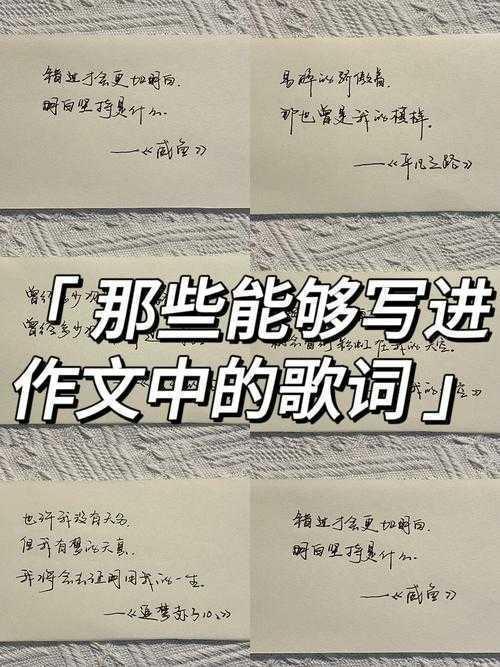 错过才会更加明白,
明白坚持是什么.
——《咸鱼》
易碎的骄傲着,
那也曾是我的模样。
——《平凡之路》
「那些能够写进
作文中的歌词」
曾经多少
曾经多少
我的天空。
也许我没有天分,
但我有梦的天真,
我将会去证明用我的一生。
——《追梦赤子心》
错过才会更加明白,
明白坚持是什么.
——《咸鱼》